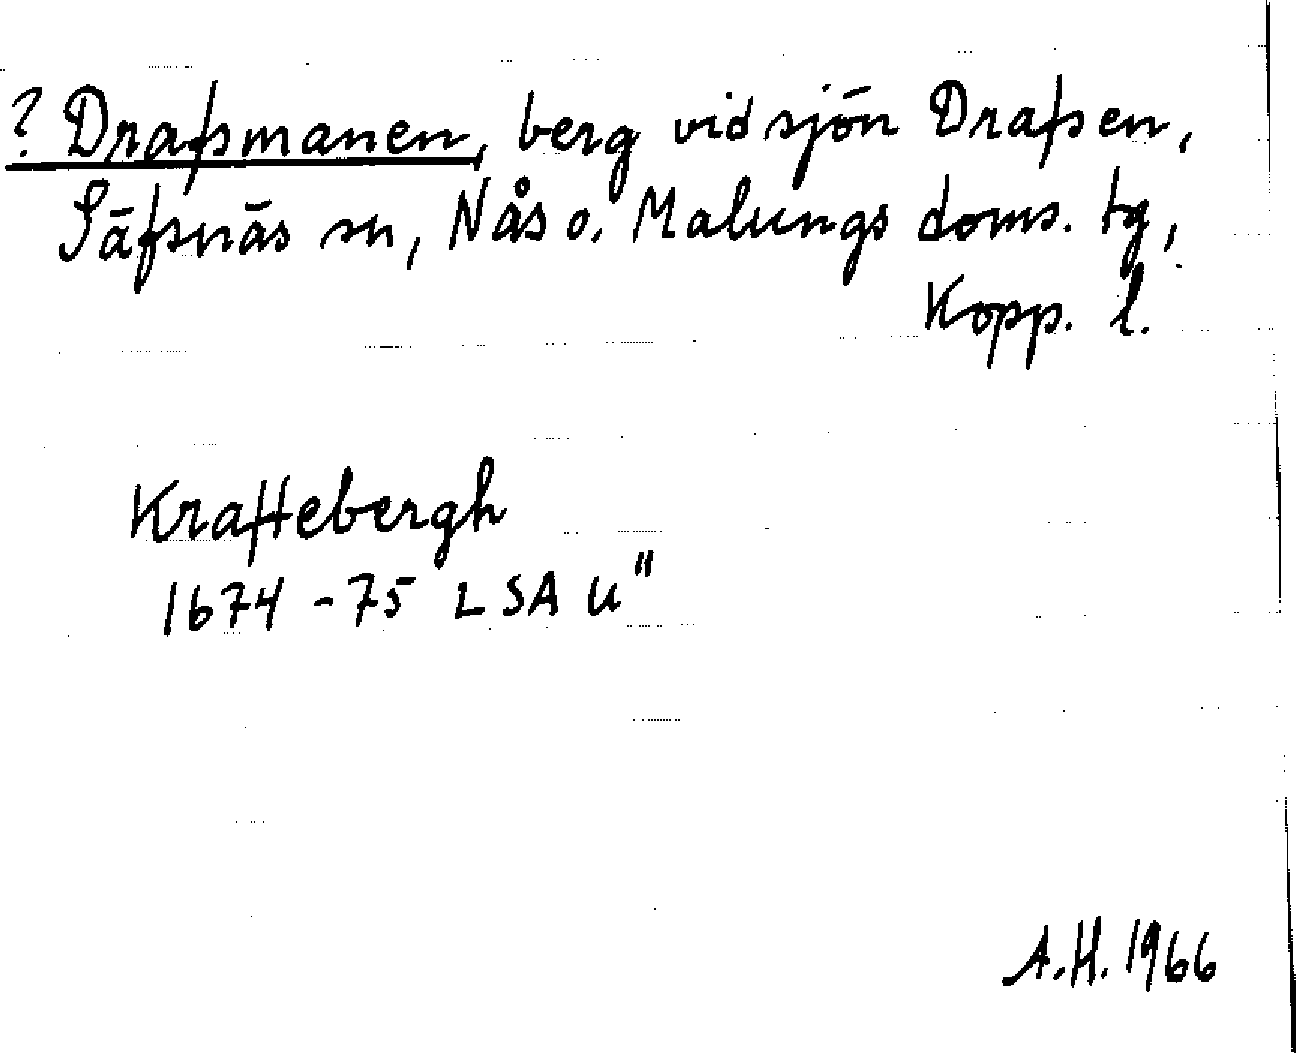 ? Drafsmanen, berg vid sjön Drafsen,
Säfsnäs sn, Nås o. Malungs doms. tg,
Kopp. l.
Kraftebergh
1674-75 LSA U"
A.H. 1966